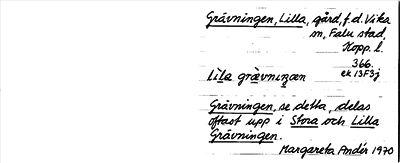 Grävningen, Lilla, gård, f.d. Vika
sn, Falu stad,
Kopp. l.
366.
ek 13F3j
lìla grævnıŋæn
Grävningen, se detta, delas
oftast upp i Stora och Lilla
Grävningen.
Margareta Andér 1970